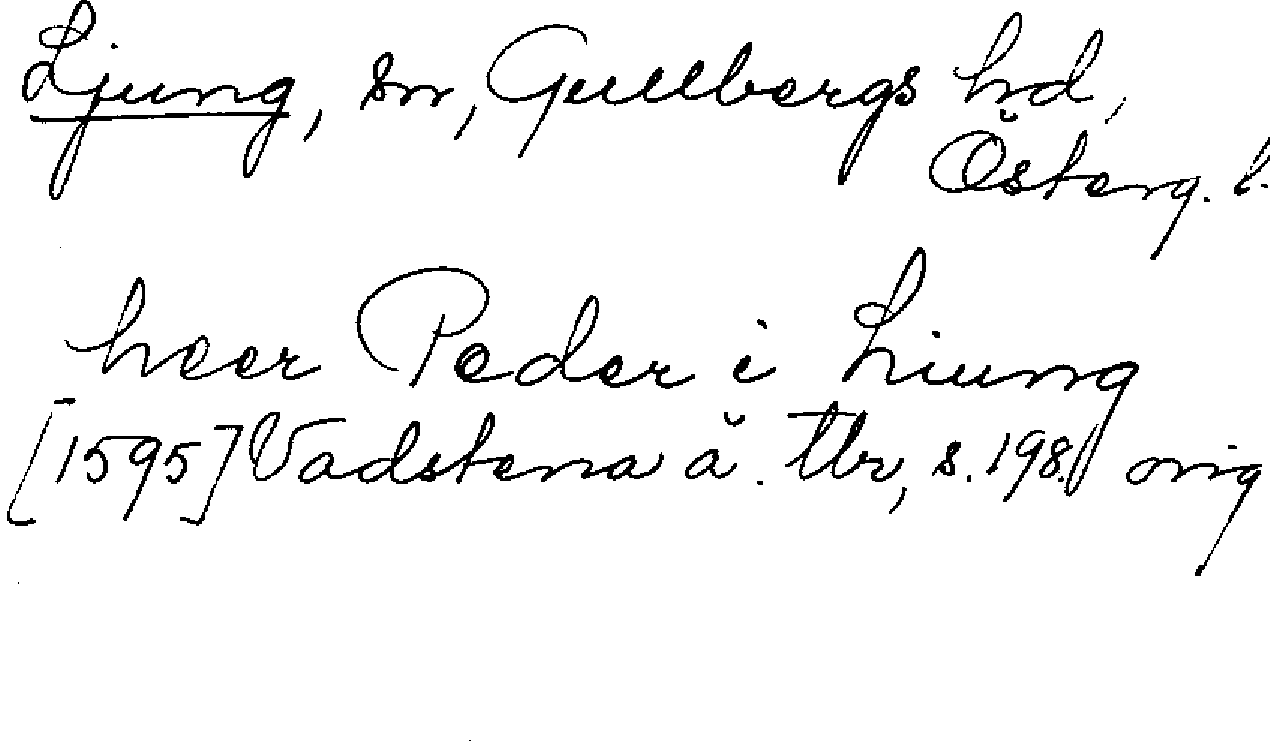 Ljung, sn, Gullbergs hd,
Österg. l.
heer Peder i Liung
[1595] Vadstena ä. tbr, s. 198. orig